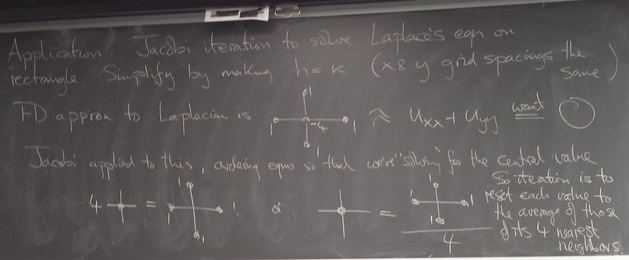 Application: Jacobi iteration to solve Laplace's eqn on
rectangle Simplify by making h = k (x & y grid spacings the same)
FD approx to Laplacian is 1 1 -4 1 1 ≈ Uxx + Uyy want = 0
Jacobi applied to this, ordering eqns so that we're "solving" for the central value
4 = 1 1 1 1 or = 1 1 1 1 / 4
So iteration is to
reset each value to
the average of those
of its 4 nearest
neighbors.